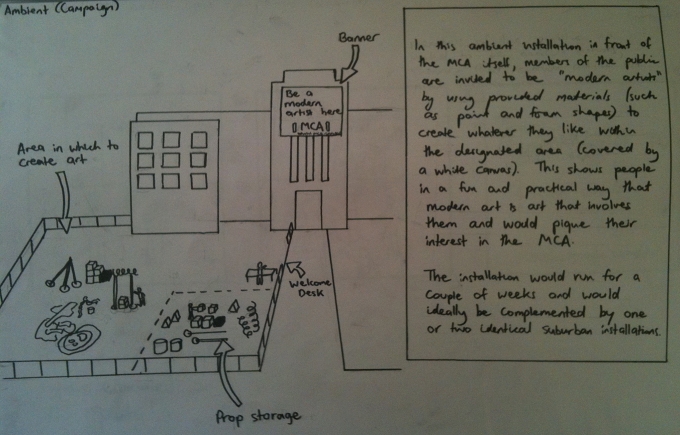 Ambient (Campaign)
Banner
Be a
modern
artist here
MCA
Area in which to
create art
Welcome
Desk
Prop storage
In this ambient installation in front of
the MCA itself, members of the public
are invited to be "modern artists"
by using provided materials (such
as paint and foam shapes) to
create whatever they like within
the designated area (covered by
a white canvas). This shows people
in a fun and practical way that
modern art is art that involves
them and would pique their
interest in the MCA.
The installation would run for a
couple of weeks and would
ideally be complemented by one
or two identical suburban installations.